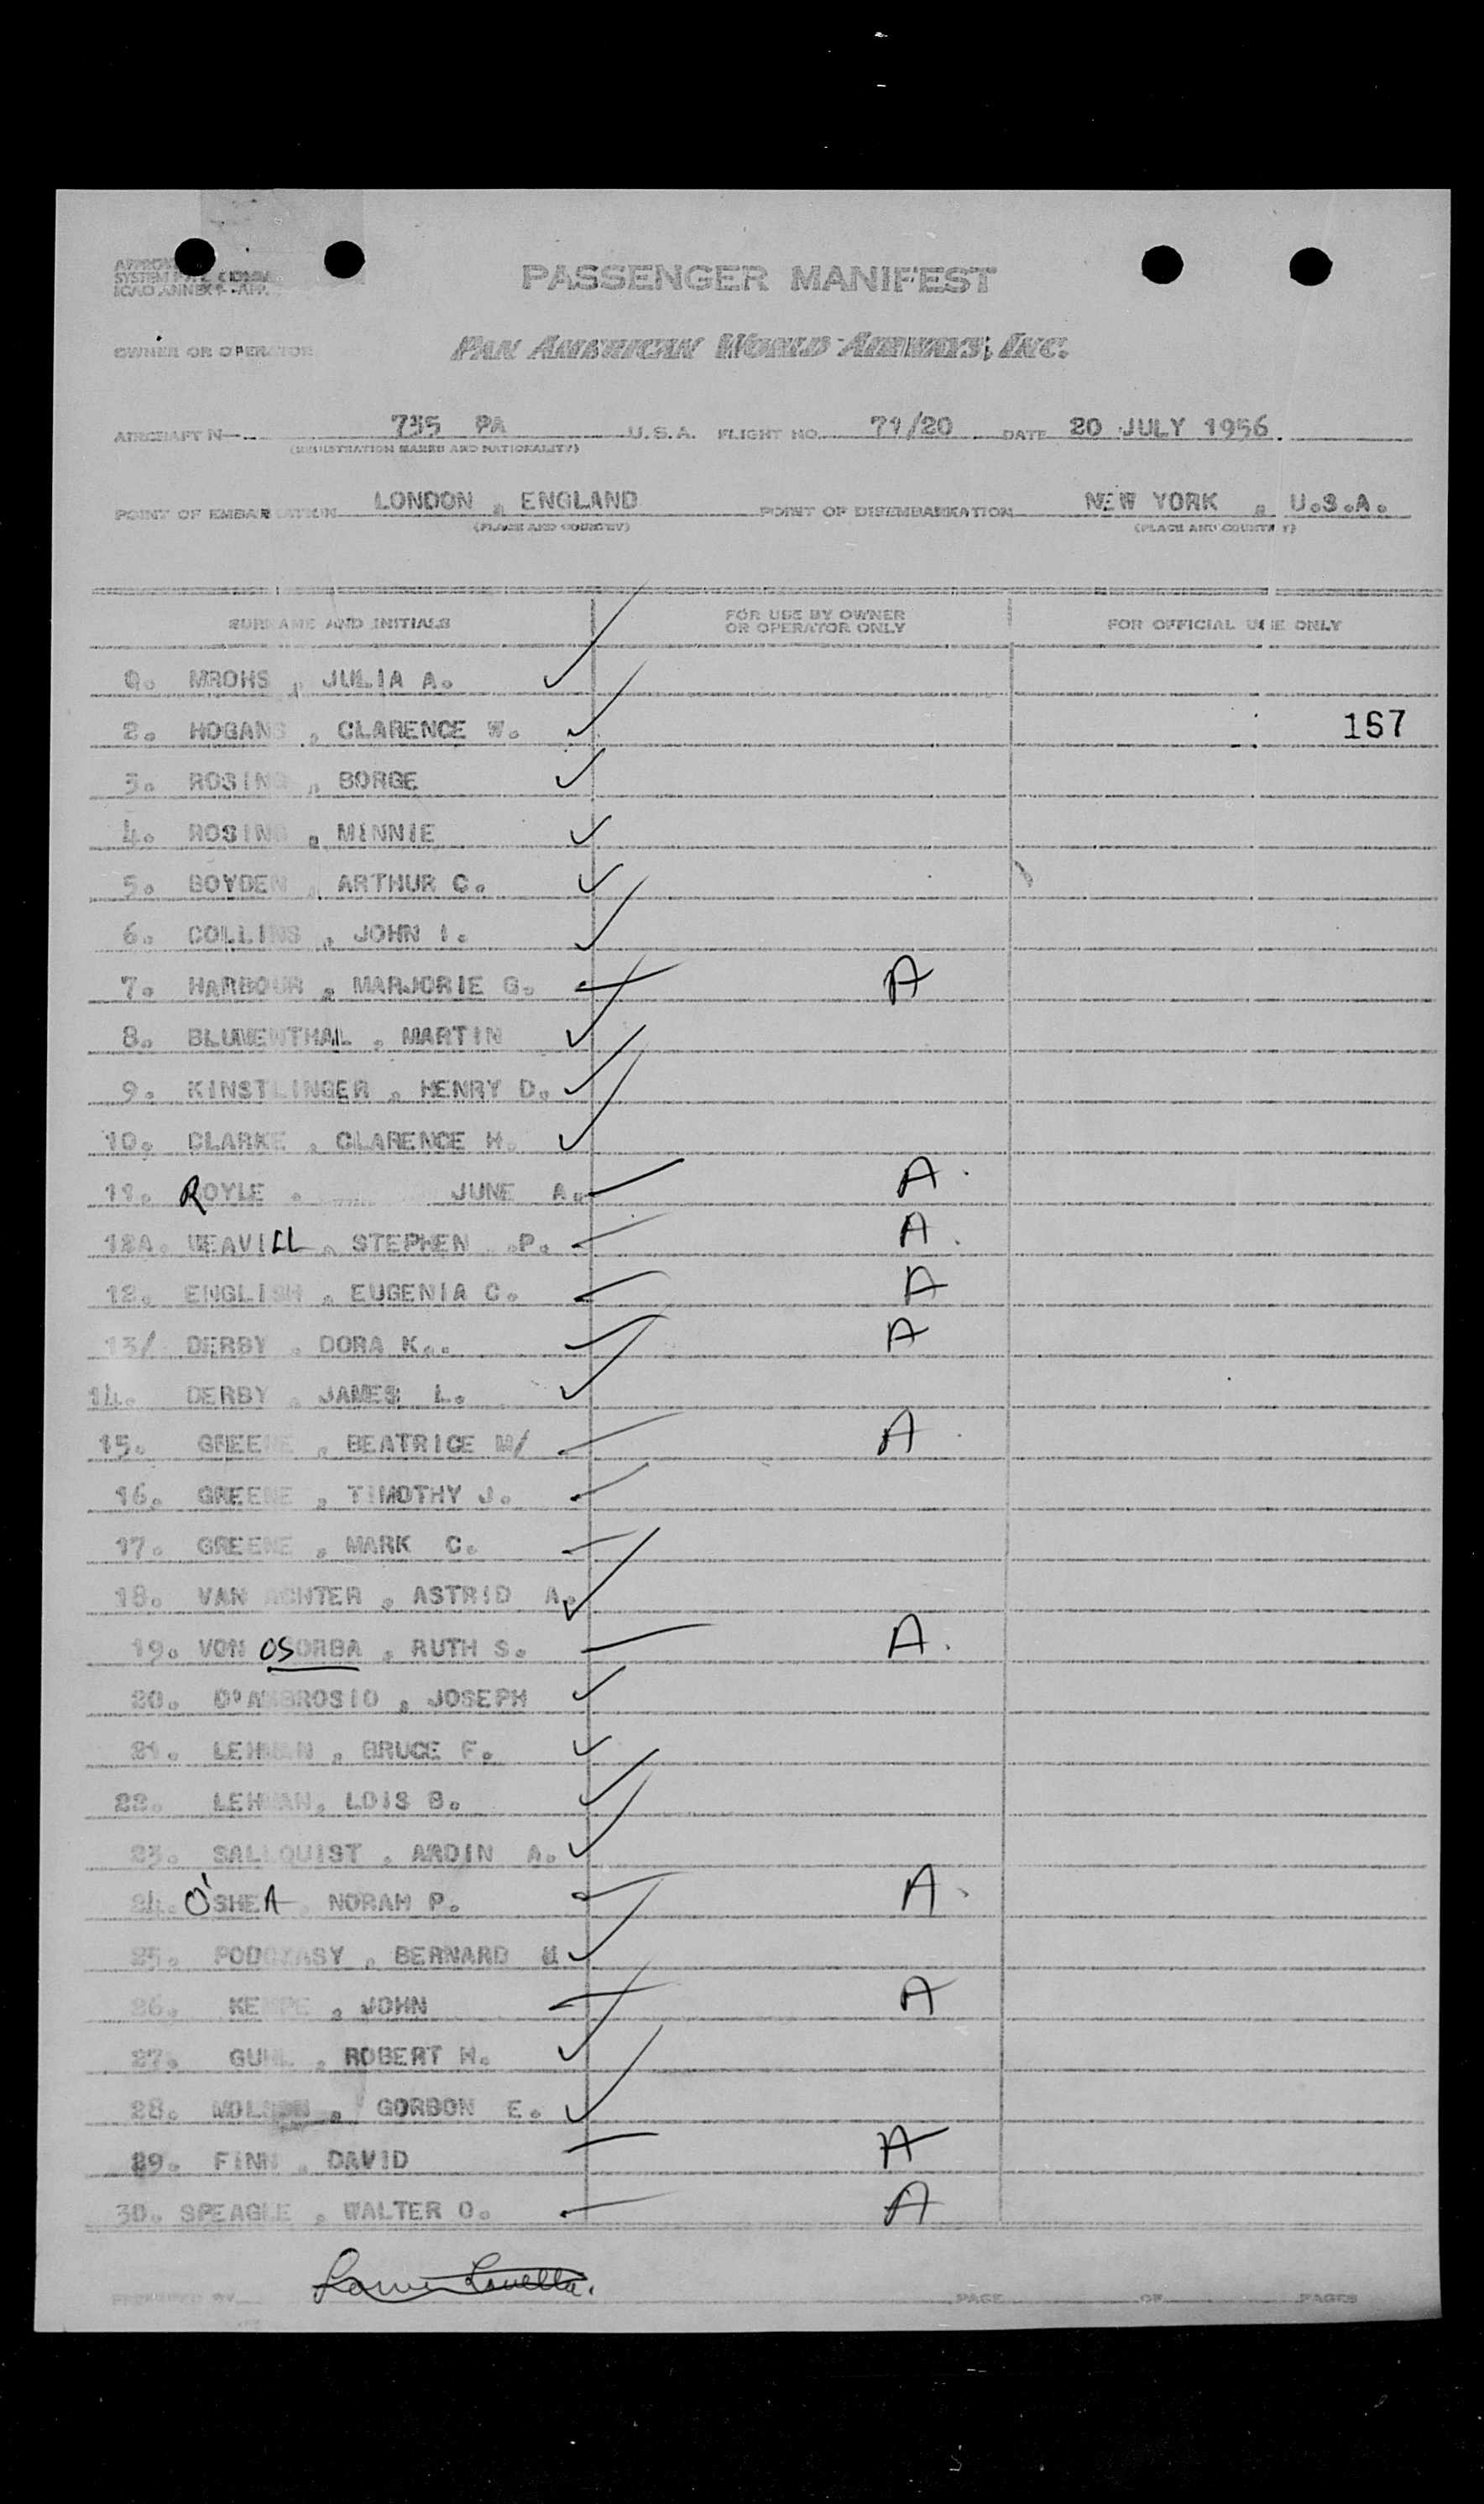 PASSENGER MANIFEST
OWNER OR OPERATOR PAN AMERICAN WORLD AIRWAYS, INC.
AIRCRAFT N- 735 PA U.S.A. FLIGHT NO. 71/20 DATE 20 JULY 1956.
(REGISTRATION MARKS AND NATIONALITY)
POINT OF EMBARKATION LONDON , ENGLAND POINT OF DISEMBARKATION NEW YORK , U.S.A.
(PLACE AND COUNTRY) (PLACE AND COUNTRY)
SURNAME AND INITIALS FOR USE BY OWNER OR OPERATOR ONLY FOR OFFICIAL USE ONLY
MROHS , JULIA A.
2. HOGANS , CLARENCE W. 167
3. ROSING , BORGE
4. ROSING , MINNIE
5. BOYDEN , ARTHUR C.
6. COLLINS , JOHN I.
7. HARBOUR , MARJORIE G. A
8. BLUMENTHAL , MARTIN
9. KINSTLINGER , HENRY D.
10. CLARKE , CLARENCE H.
11. ROYLE . JUNE A. A
12A. WEAVILL , STEPHEN .P. A
12. ENGLISH , EUGENIA C. A
13/ DERBY , DORA K.. A
14. DERBY , JAMES L.
15. GREENE , BEATRICE M/ A
16. GREENE , TIMOTHY J.
17. GREENE , MARK C.
18. VAN ACHTER , ASTRID A.
19. VON OSORBA , RUTH S. A
20. D'AMBROSIO , JOSEPH
21. LEHMAN , BRUCE F.
22. LEHMAN, LOIS B.
23. SALLQUIST , ARDIN A.
24. O'SHEA , NORAH P. A
25. , BERNARD M
26. KEMPE , JOHN A
27. , ROBERT H.
28. , GORDON E.
29. FINN , DAVID A
30. SPEAGLE , WALTER O. A
PREPARED BY PAGE OF PAGES